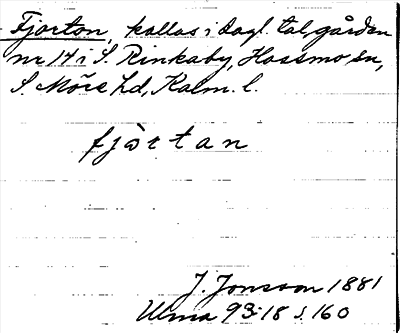 Fjorton, kallas i dagl. tal, gården
nr 14 i S. Rinkaby, Hossmo sn,
S. Möre hd, Kalm. l.
fjòrtan
J. Jonsson 1881
Ulma 93:18 s. 160